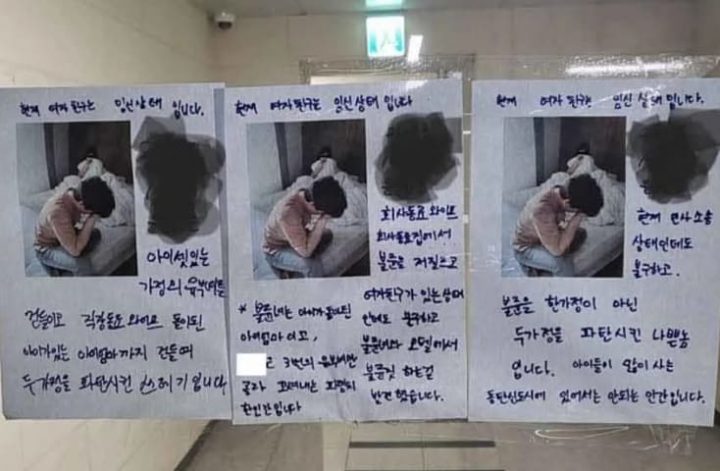 현재 여자친구는 임신상태 입니다.
아이셋있는
가정의 유부녀를
건들이고 직장동료 와이프 돌이된
아이가있는 아이엄마까지 건들여
두가정을 파탄시킨 쓰레기입니다
현재 여자친구는 임신상태 입니다
회사동료 와이프
회사동료집에서
불륜을 저질르고
여자친구가 있는상태
인데도 불구하고
불륜녀와 모텔에서
불륜짓 하는걸
발견했습니다.
* 불륜녀는 아이가돌이된
아이엄마 이고,
고 3번의 유부녀만
골라
입니다
현재 여자친구는 임신상태입니다.
현재 민사소송
상태인데도
불구하고.
불륜을 한가정이 아닌
두가정을 파탄시킨 나쁜놈
입니다. 아이들이 많이 사는
동탄신도시에 있어서는 안되는 인간입니다.